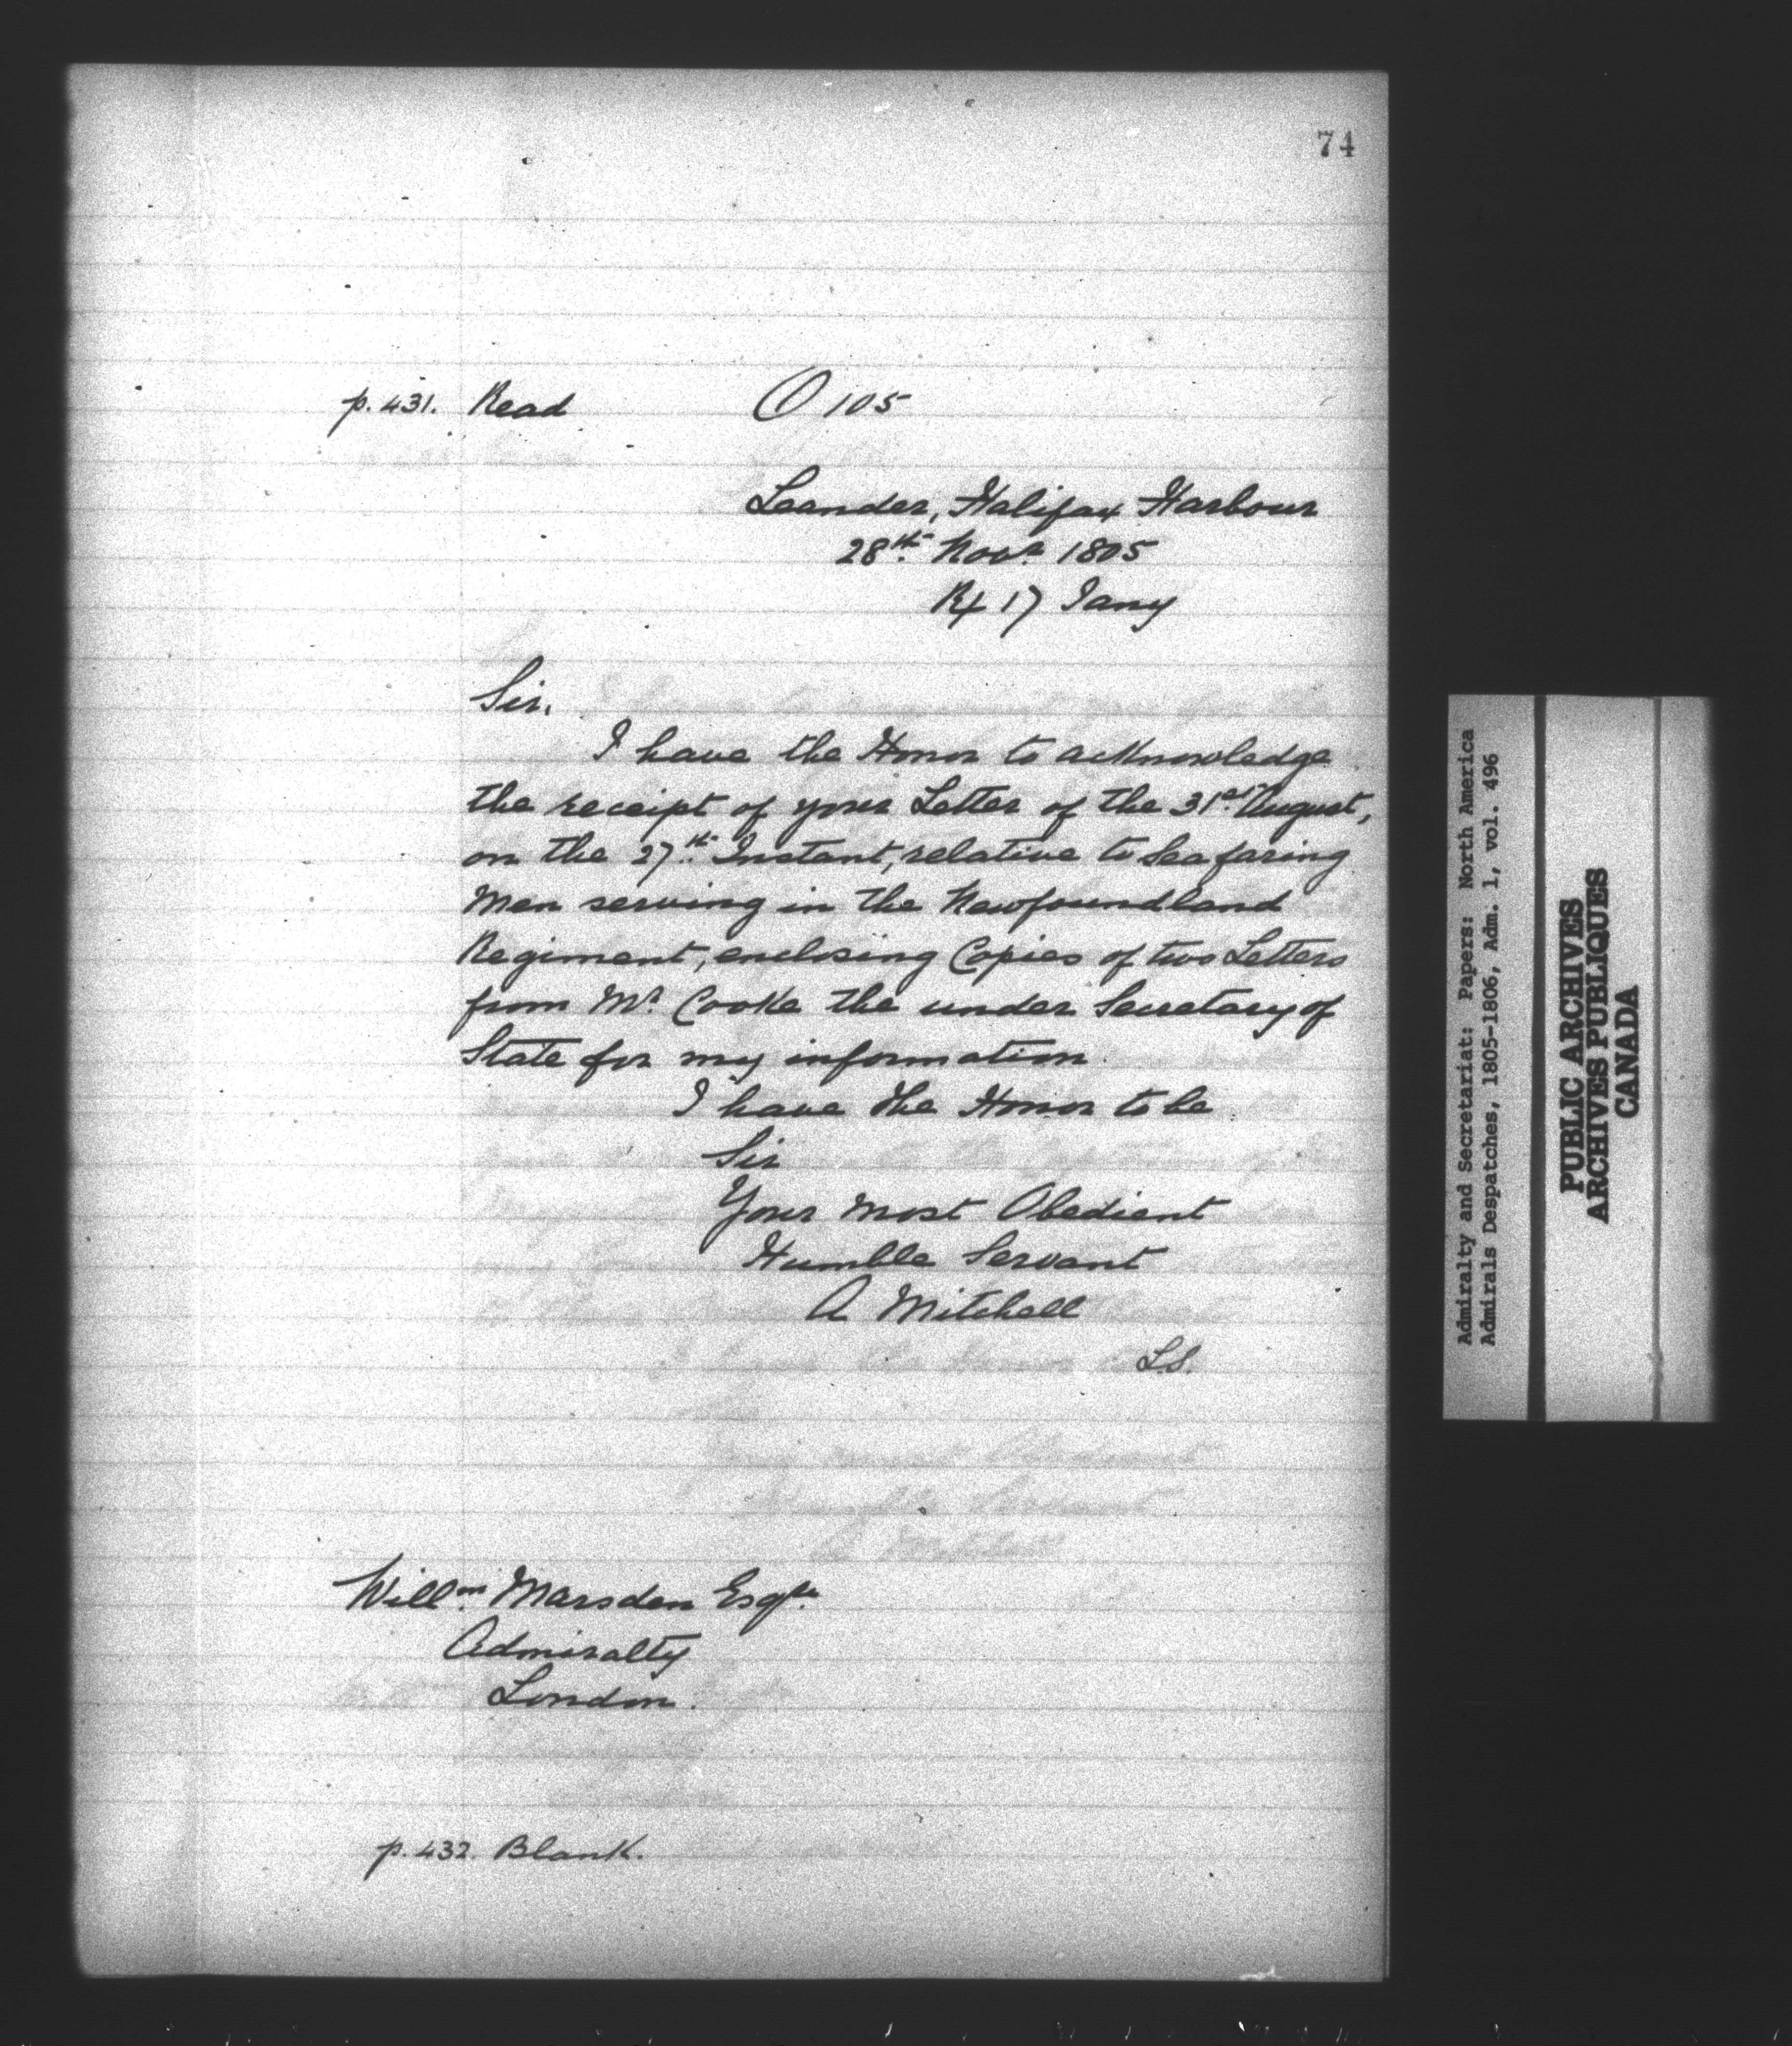 74
p. 431. Read O 105
Leander, Halifax Harbour
28th Novr. 1805
Rx 17 Jany
Sir,
I have the Honor to acknowledge
the receipt of your Letter of the 31st August,
on the 27th Instant, relative to Seafaring
Men serving in the Newfoundland
Regiment, enclosing Copies of two Letters
from Mr. Cooke the under Secretary of
State for my information.
I have the Honor to be
Sir
Your most Obedient
Humble Servant
A Mitchell
L.S.
Willm. Marsden Esqre.
Admiralty
London.
p. 432. Blank.
Admiralty and Secretariat: Papers: North America
Admirals Despatches, 1805-1806, Adm. 1, vol. 496
PUBLIC ARCHIVES
ARCHIVES PUBLIQUES
CANADA